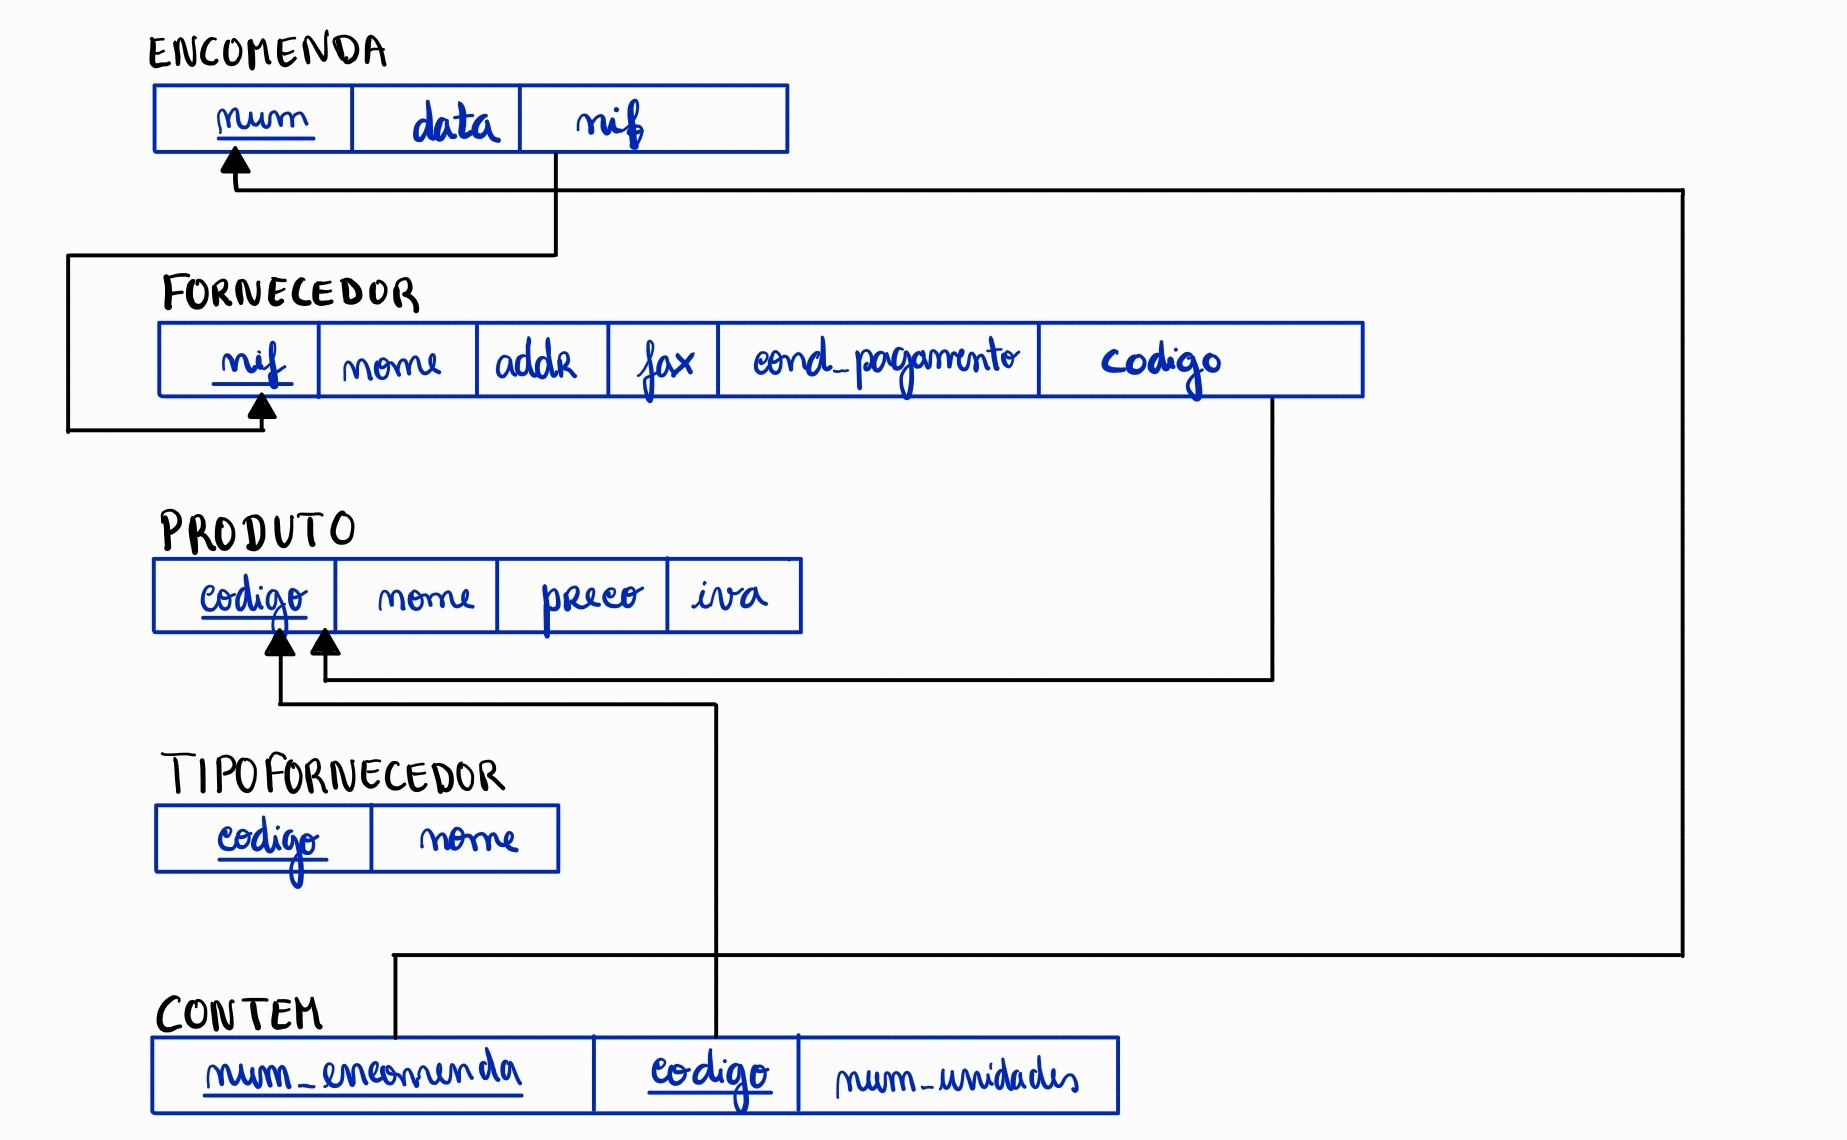 ENCOMENDA
num data nif
FORNECEDOR
nif nome addr fax cond_pagamento codigo
PRODUTO
codigo nome preco iva
TIPOFORNECEDOR
codigo nome
CONTEM
num_encomenda codigo num_unidades